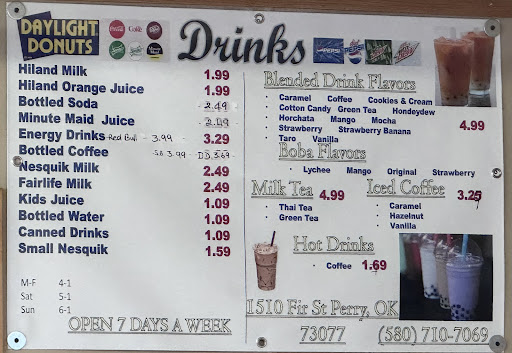 DAYLIGHT
DONUTS
Coke
Drinks
PEPSI
Hiland Milk 1.99
Hiland Orange Juice 1.99
Bottled Soda 2.49
Minute Maid Juice 2.49
Energy Drinks Red Bull - 3.99 3.29
Bottled Coffee SB 3.99 - DD 3.69
Nesquik Milk 2.49
Fairlife Milk 2.49
Kids Juice 1.09
Bottled Water 1.09
Canned Drinks 1.09
Small Nesquik 1.59
M-F 4-1
Sat 5-1
Sun 6-1
OPEN 7 DAYS A WEEK
Blended Drink Flavors
· Caramel Coffee Cookies & Cream
· Cotton Candy Green Tea Honeydew
· Horchata Mango Mocha 4.99
· Strawberry Strawberry Banana
· Taro Vanilla
Boba Flavors
· Lychee Mango Original Strawberry
Milk Tea 4.99
· Thai Tea
· Green Tea
Iced Coffee 3.25
· Caramel
· Hazelnut
· Vanilla
Hot Drinks
· Coffee 1.69
1510 Fir St Perry, OK
73077 (580) 710-7069